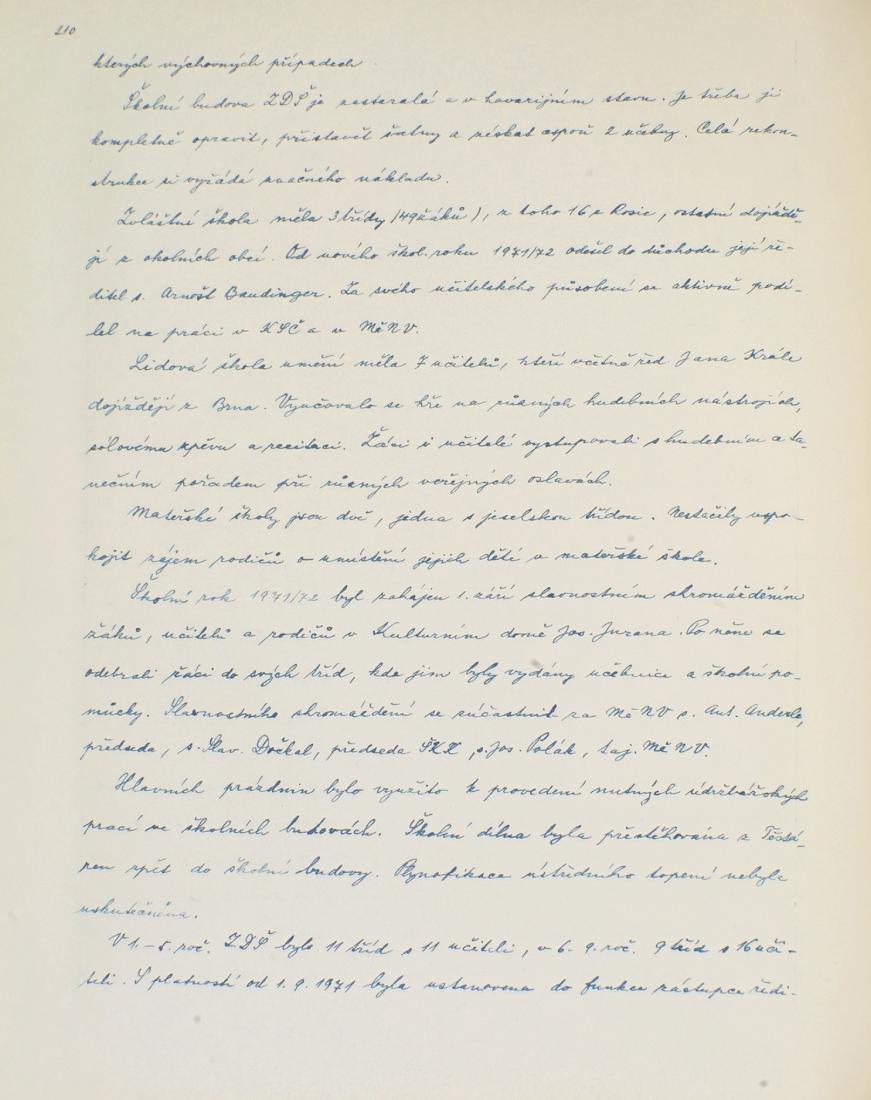 210
kterých výchovných případech.
Školní budova ZDŠ je zastaralá a v havarijním stavu. Je třeba ji
kompletně opravit, přistavět šatny a získat aspoň 2 učebny. Celá rekon-
strukce si vyžádá značného nákladu.
Zvláštní škola měla 3 třídy /49 žáků/, z toho 16 z Rosic, ostatní dojíždě-
jí z okolních obcí. Od nového škol. roku 1971/72 odešel do důchodu její ře-
ditel s. Arnošt Baudinger. Za svého učitelského působení se aktivně podí-
lel na práci v KSČ a v MěNV.
Lidová škola umění měla 7 učitelů, kteří včetně řed. Jana Krále
dojíždějí z Brna. Vyučovalo se hře na různých hudebních nástrojích,
sólovému zpěvu a recitaci. Žáci i učitelé vystupovali s hudebním a ta-
nečním pořadem při různých veřejných oslavách.
Mateřské školy jsou dvě, jedna s jeselskou třídou. Nestačily uspo-
kojit zájem rodičů o umístění jejich dětí v mateřské škole.
Školní rok 1971/72 byl zahájen 1. září slavnostním shromážděním
žáků, učitelů a rodičů v Kulturním domě Jos. Jurana. Po něm se
odebrali žáci do svých tříd, kde jim byly vydány učebnice a školní po-
můcky. Slavnostního shromáždění se zúčastnil za MěNV s. Ant. Anderle,
předseda, s. Slav. Dočkal, předseda ŠKK, s. Jos. Polák, taj. MěNV.
Hlavních prázdnin bylo využito k provedení nutných údržbářských
prací ve školních budovách. Školní dílna byla přestěhována z Tesá-
ren zpět do školní budovy. Plynofikace ústředního topení nebyla
uskutečněna.
V 1.-5. roč. ZDŠ bylo 11 tříd s 11 učiteli, v 6.-9. roč. 9 tříd s 16 uči-
teli. S platností od 1. 9. 1971 byla ustanovena do funkce zástupce ředi-